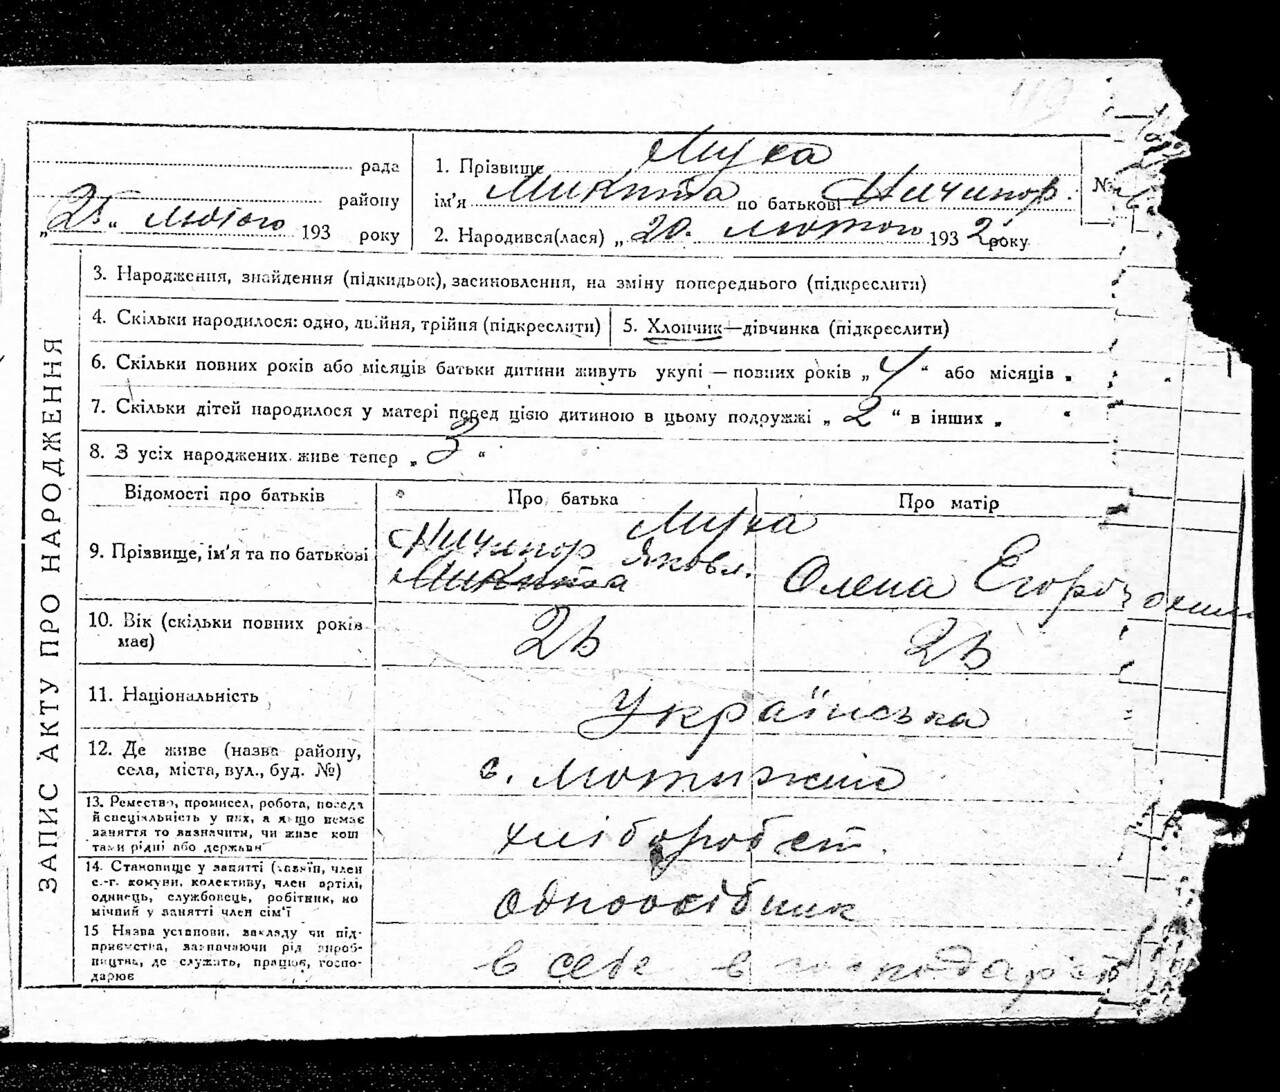 119
рада
району
„25“ лютого 193 року
1. Прізвище Муха
ім'я Микита по батькові Ничипор.
№
2. Народився(лася) „20. лютого 1932 року
ЗАПИС АКТУ ПРО НАРОДЖЕННЯ
3. Народження, знайдення (підкидьок), засиновлення, на зміну попереднього (підкреслити)
4. Скільки народилося: одно, двійня, трійня (підкреслити)
5. Хлопчик—дівчинка (підкреслити)
6. Скільки повних років або місяців батьки дитини живуть укупі — повних років „4“ або місяців „ “
7. Скільки дітей народилося у матері перед цією дитиною в цьому подружжі „2“ в інших „ “
8. З усіх народжених живе тепер „3“
Відомості про батьків
Про батька
Про матір
9. Прізвище, ім'я та по батькові
Муха
Ничипор Яковл.
Микита
Олена Егоро
10. Вік (скільки повних років має)
25
25
11. Національність
Українська
12. Де живе (назва району,
села, міста, вул., буд. №)
с. Мотижин
13. Ремество, промисел, робота, посада
й спеціяльність у них, а якщо немає
заняття то зазначити, чи живе кош
тами рідні або держави
хліборобст.
14. Становище у занятті (хазяїн, член
с.-г. комуни, колективу, член артілі,
одинець, службовець, робітник, по
мічний у занятті член сім'ї
одноосібник
15 Назва установи, закладу чи під-
приємства, зазначаючи рід вироб-
ництва, де служать, працює, госпо-
дарює
в себе в господарст